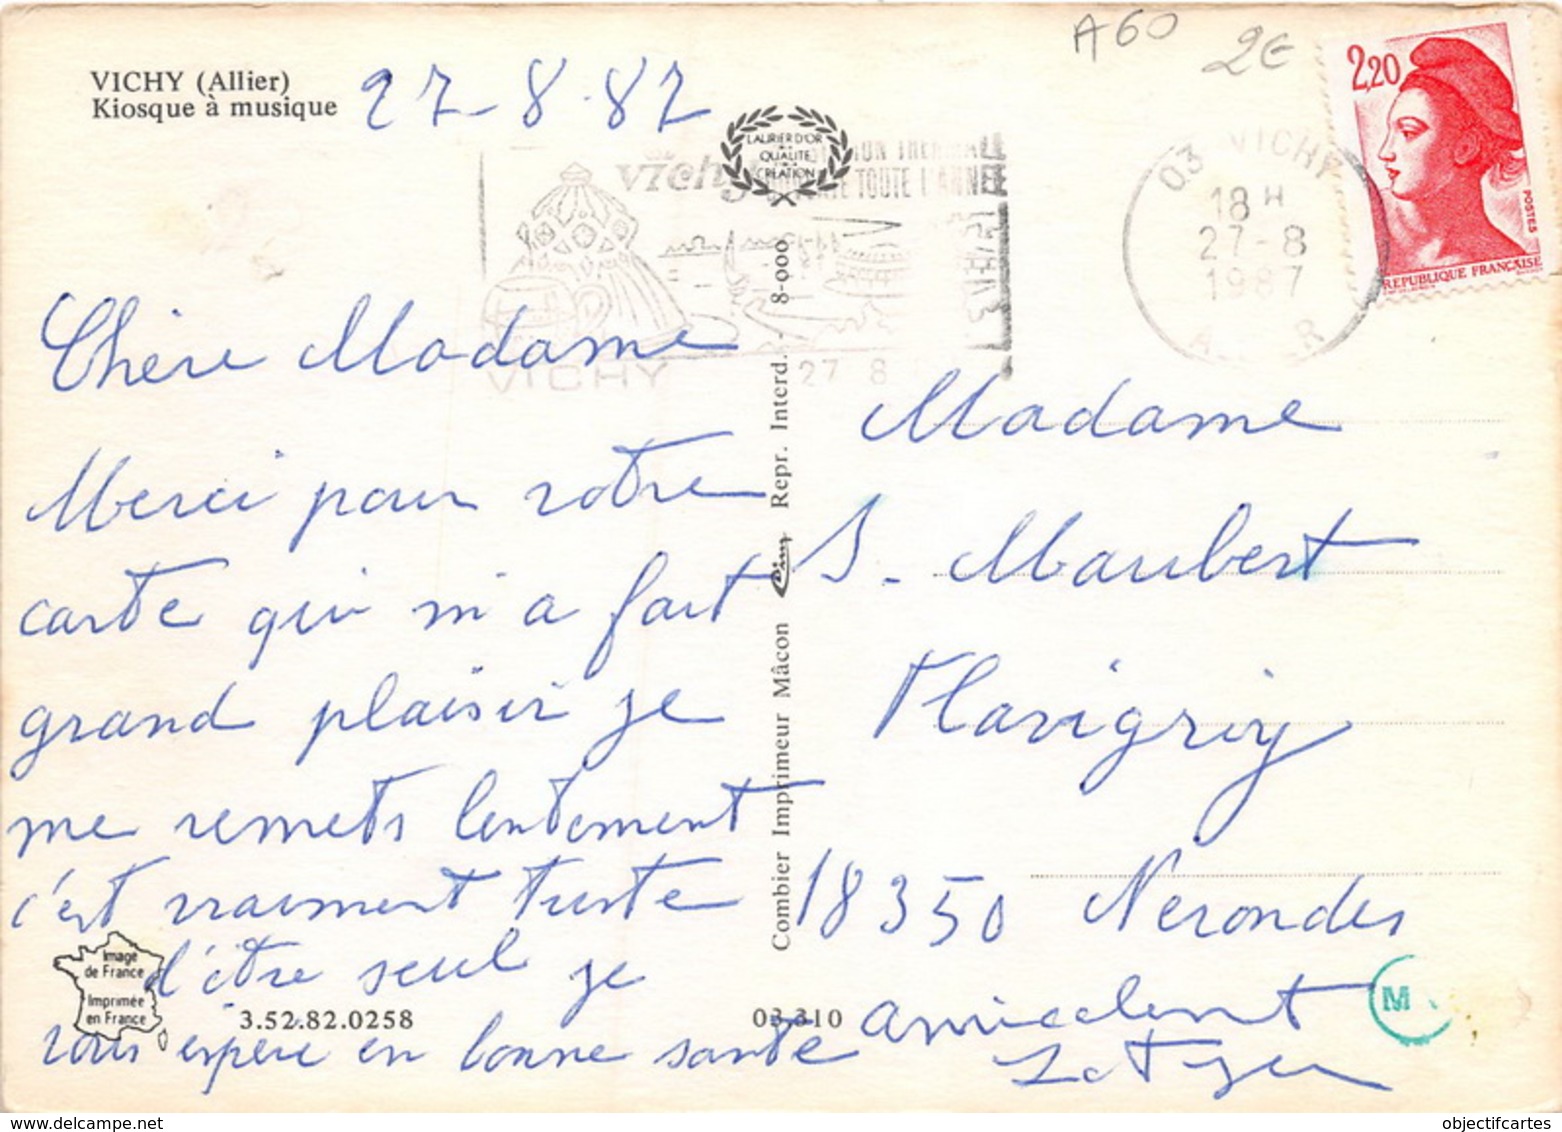 A60
2€
VICHY (Allier)
Kiosque à musique
27-8-87
LAURIER D'OR
QUALITE
CREATION
vichy
TOUTE L'ANNEE
VICHY
27 8
03 VICHY
18 H
27-8
1987
2,20
POSTES
REPUBLIQUE FRANÇAISE
Chère Madame
Merci pour votre
carte qui m'a fait
grand plaisir je
me remets lentement
c'est vraiment triste
d'être seul je
vous espère en bonne santé
amicalement
Madame
S. Maubert
Flavigny
18350 Nerondes
Combier Imprimeur Mâcon Cim Repr. Interd. - 8-000
Image
de France
Imprimée
en France
3.52.82.0258
03.310
M
objectifcartes